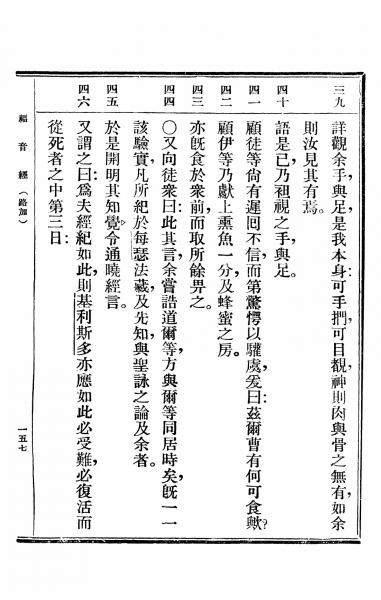 三九
詳觀余手與足是我本身可手捫可目覩神則肉與骨之無有如余
則汝見其有焉
四十
語是已乃袒視之手與足
四一
顧徒等尙有遲囘不信而第驚愕以驩虞爰曰玆爾曹有何可食歟
四二
顧伊等乃獻上熏魚一分及蜂蜜之房
四三
亦旣食於衆前而取所餘畀之
四四
〇又向徒衆曰此其言余嘗誥道爾等方與爾等同居時矣旣一一
該驗實凡所紀於每瑟法藏及先知與聖詠之論及余者
四五
於是開明其知覺令通曉經言
四六
又謂之曰爲夫經紀如此則基利斯多亦應如此必受難必復活而
從死者之中第三日
福音經(路加)
一五七